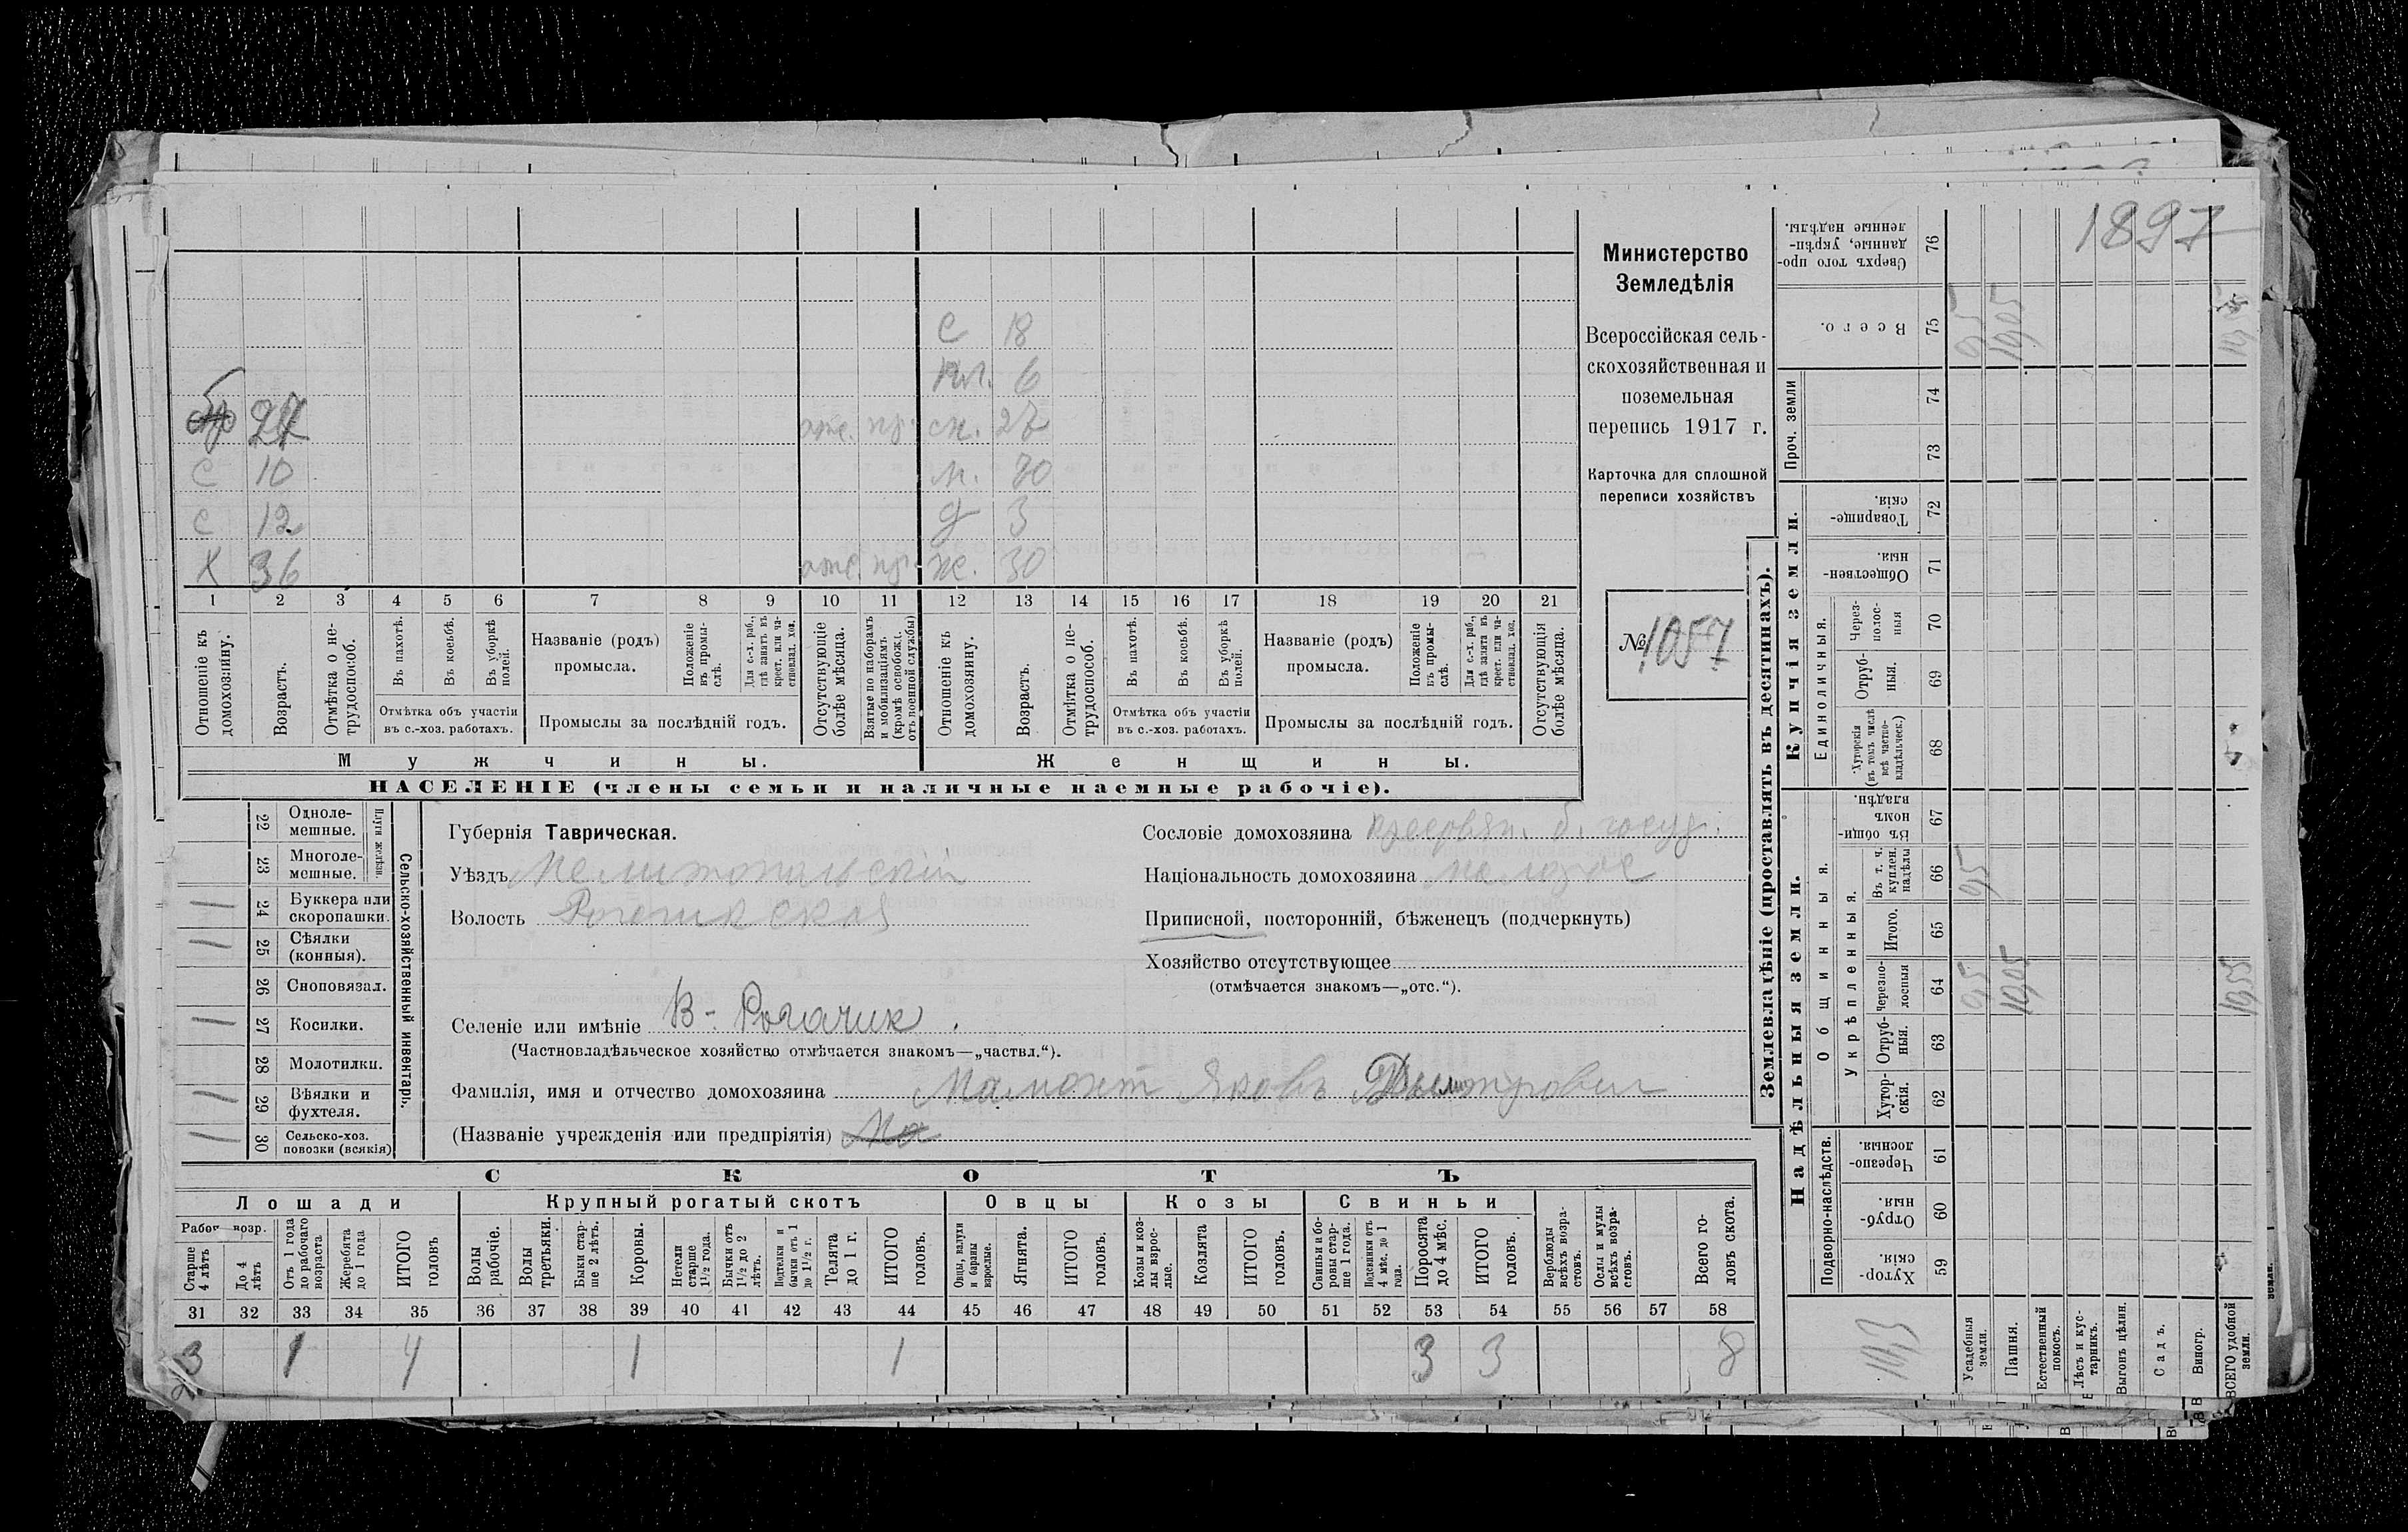 1897
Министерство
Земледѣлія
Всероссійская сель-
скохозяйственная и
поземельная
перепись 1917 г.
Карточка для сплошной
переписи хозяйствъ
№ 1057
С 18
6
27 отс. 27
С 10 м. 70
С 12 д 3
Х 36 отс. ж. 30
1 2 3 4 5 6 7 8 9 10 11 12 13 14 15 16 17 18 19 20 21
Отношеніе къ домохозяину.
Возрастъ.
Отмѣтка о нетрудоспособ.
Въ пахотѣ.
Въ косьбѣ.
Въ уборкѣ полей.
Отмѣтка объ участіи въ с.-хоз. работахъ.
Названіе (родъ) промысла.
Положеніе въ промыслѣ.
Для с.-х. раб., гдѣ занятъ въ крест. или частновлад. хоз.
Промыслы за послѣдній годъ.
Отсутствующіе болѣе мѣсяца.
Взятые по наборамъ и мобилизаціямъ (кромѣ освобожд. отъ военной службы)
Отношеніе къ домохозяину.
Возрастъ.
Отмѣтка о нетрудоспособ.
Въ пахотѣ.
Въ косьбѣ.
Въ уборкѣ полей.
Отмѣтка объ участіи въ с.-хоз. работахъ.
Названіе (родъ) промысла.
Положеніе въ промыслѣ.
Для с.-х. раб., гдѣ занята въ крест. или частновлад. хоз.
Промыслы за послѣдній годъ.
Отсутствующія болѣе мѣсяца.
Мужчины. Женщины.
НАСЕЛЕНІЕ (члены семьи и наличные наемные рабочіе).
Сельско-хозяйственный инвентарь.
Плуги желѣзн.
22 Одноле-
мешные.
23 Многоле-
мешные.
1 24 Буккера или
скоропашки.
1 25 Сѣялки
(конныя).
26 Сноповязал.
1 27 Косилки.
28 Молотилки.
1 29 Вѣялки и
фухтеля.
1 30 Сельско-хоз.
повозки (всякія)
Губернія Таврическая.
Уѣздъ Мелитопольскій
Волость Рогачикская
Селеніе или имѣніе В-Рогачик.
(Частновладѣльческое хозяйство отмѣчается знакомъ—„частвл.“).
Фамилія, имя и отчество домохозяина Мамонт Яковъ Дмитрович
(Названіе учрежденія или предпріятія) Ма
Сословіе домохозяина б. госуд.
Національность домохозяина малорос
Приписной, посторонній, бѣженецъ (подчеркнуть)
Хозяйство отсутствующее
(отмѣчается знакомъ—„отс.“).
СКОТЪ
Лошади Крупный рогатый скотъ Овцы Козы Свиньи
Рабоч. возр.
Старше 4 лѣтъ
До 4 лѣтъ
Отъ 1 года до рабочаго возраста
Жеребята до 1 года
ИТОГО головъ
Волы рабочіе.
Волы третьяки.
Быки старше 2 лѣтъ.
Коровы.
Нетели старше 1½ года.
Бычки отъ 1½ до 2 лѣтъ.
Подтелки и бычки отъ 1 до 1½ г.
Телята до 1 г.
ИТОГО головъ.
Овцы, валухи и бараны взрослые.
Ягнята.
ИТОГО головъ.
Козы и козлы взрослые.
Козлята
ИТОГО головъ.
Свиньи и боровы старше 1 года.
Подсвинки отъ 4 мѣс. до 1 года.
Поросята до 4 мѣс.
ИТОГО головъ.
Верблюды всѣхъ возрастовъ.
Ослы и мулы всѣхъ возрастовъ.
Всего головъ скота.
31 32 33 34 35 36 37 38 39 40 41 42 43 44 45 46 47 48 49 50 51 52 53 54 55 56 57 58
3 1 4 1 1 3 3 8
Землевладѣніе (проставлять въ десятинахъ).
Купчія земли.
Надѣльныя земли.
Единоличныя.
Общинныя.
Укрѣпленныя.
Подворно-наслѣдств.
Проч. земли
Сверхъ того проданные, укрѣпленные надѣлы. 76
Всего. 75
74
73
Товарищескія. 72
Общественныя. 71
Черезполосныя 70
Отрубныя. 69
Хуторскія (въ томъ числѣ всѣ частновладѣльческ.) 68
Въ общинномъ владѣн. 67
Въ т. ч. куплен. надѣлы 66
Итого. 65
Черезполосныя 64
Отрубныя. 63
Хуторскія. 62
Черезполосныя. 61
Отрубныя. 60
Хуторскія. 59
Усадебныя земли.
Пашня.
Естественный покосъ.
Лѣсъ и кустарникъ.
Выгонъ цѣлин.
Садъ.
Виногр.
ВСЕГО удобной земли.